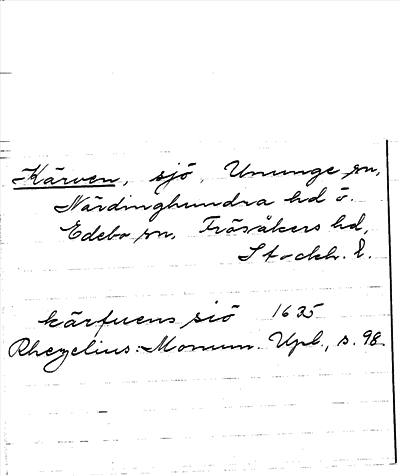 Kärven, sjö, Ununge sn,
Närdinghundra hd o.
Edebo sn, Frösåkers hd,
Stockh. l.
kärfuens siö 1635
Rhezelius: Monum. Upl., s. 98.